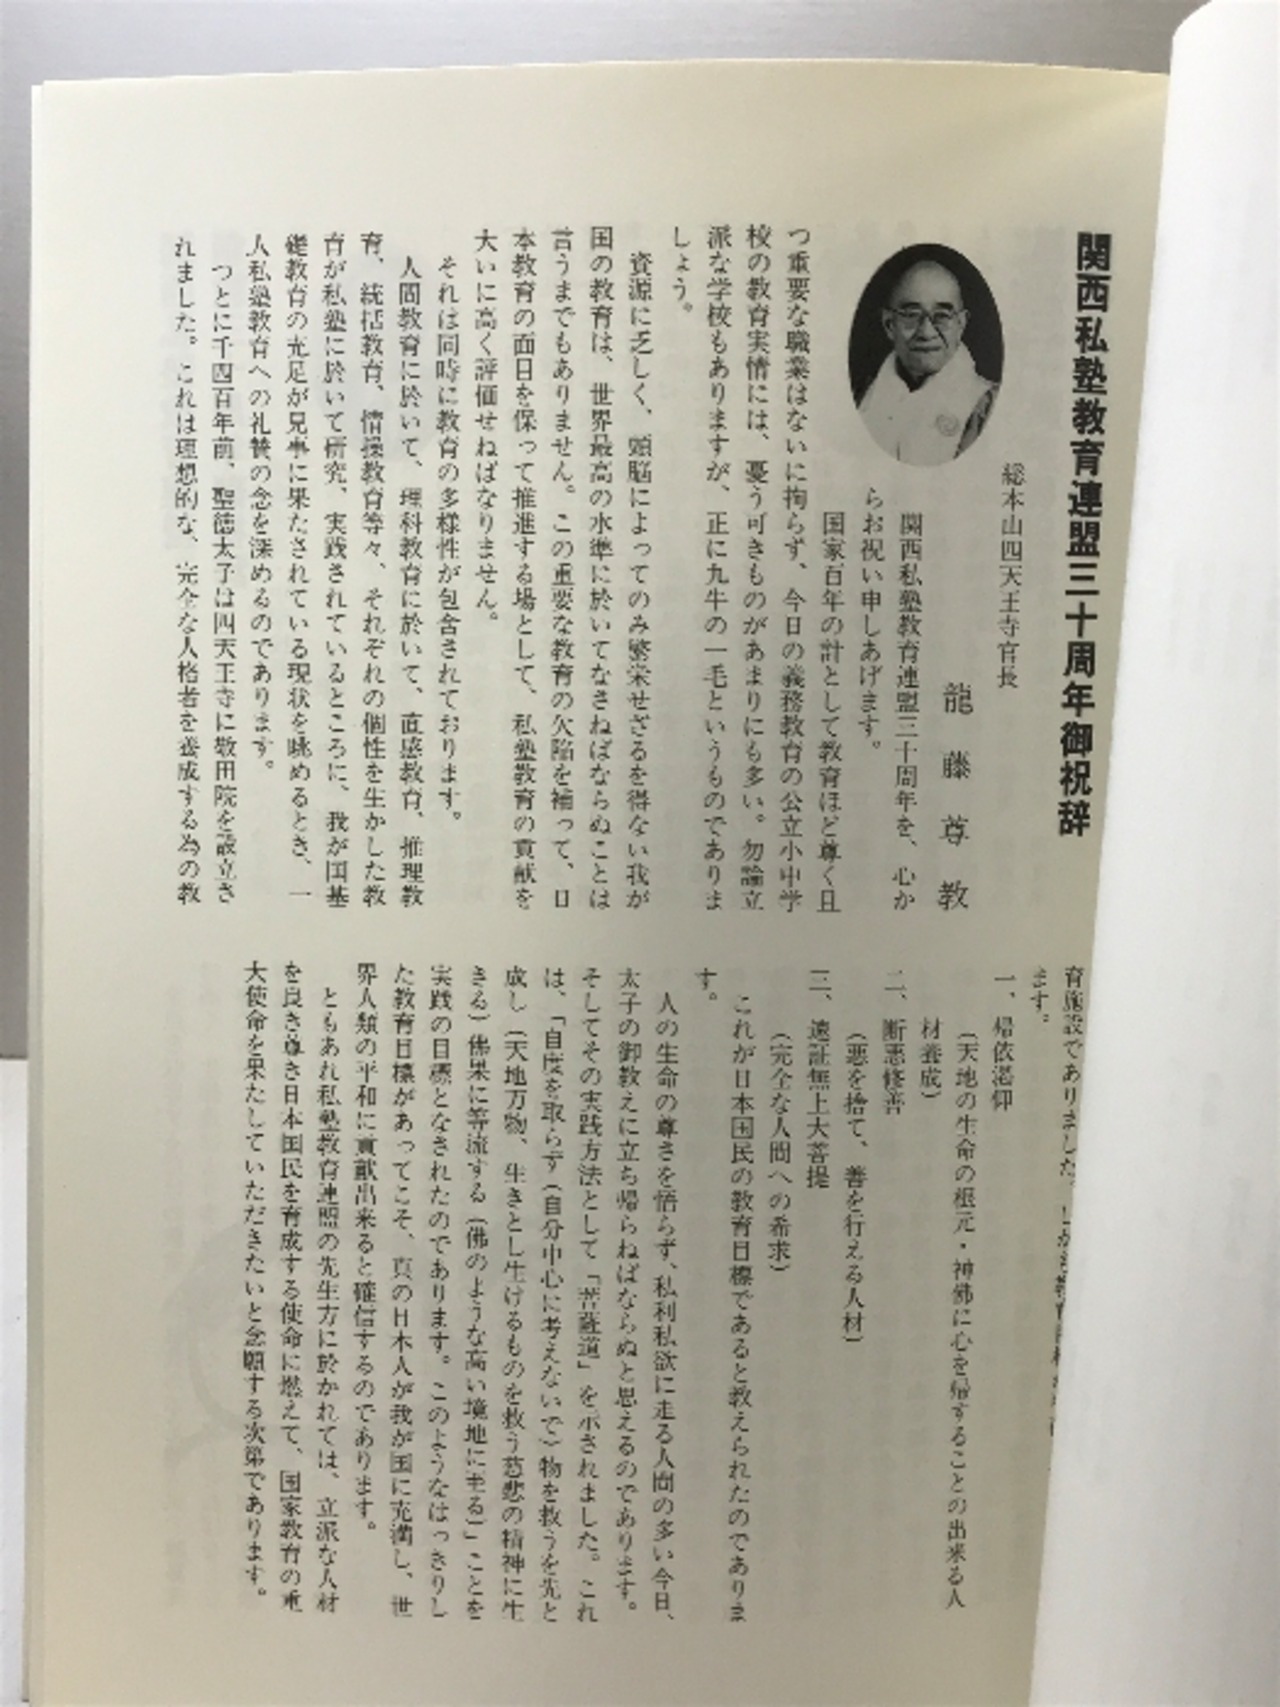 関西私塾教育連盟三十周年御祝辞
総本山四天王寺官長
龍藤尊教
関西私塾教育連盟三十周年を、心か
らお祝い申しあげます。
国家百年の計として教育ほど尊く且
つ重要な職業はないに拘らず、今日の義務教育の公立小中学
校の教育実情には、憂う可きものがあまりにも多い。勿論立
派な学校もありますが、正に九牛の一毛というものでありま
しょう。
資源に乏しく、頭脳によってのみ繁栄せざるを得ない我が
国の教育は、世界最高の水準に於いてなさねばならぬことは
言うまでもありません。この重要な教育の欠陥を補って、日
本教育の面目を保って推進する場として、私塾教育の貢献を
大いに高く評価せねばなりません。
それは同時に教育の多様性が包含されております。
人間教育に於いて、理科教育に於いて、直感教育、推理教
育、統括教育、情操教育等々、それぞれの個性を生かした教
育が私塾に於いて研究、実践されているところに、我が国基
礎教育の充足が見事に果たされている現状を眺めるとき、一
人私塾教育への礼賛の念を深めるのであります。
つとに千四百年前、聖徳太子は四天王寺に敬田院を設立さ
れました。これは理想的な、完全な人格者を養成する為の教
育施設でありました。
ます。
一、帰依渇仰
（天地の生命の根元・神佛に心を帰することの出来る人
材養成）
二、断悪修善
（悪を捨て、善を行える人材）
三、速証無上大菩提
（完全な人間への希求）
これが日本国民の教育目標であると教えられたのでありま
す。
人の生命の尊さを悟らず、私利私欲に走る人間の多い今日、
太子の御教えに立ち帰らねばならぬと思えるのであります。
そしてその実践方法として「菩薩道」を示されました。これ
は、「自度を取らず（自分中心に考えないで）物を救うを先と
成し（天地万物、生きとし生けるものを救う慈悲の精神に生
きる）佛果に等流する（佛のような高い境地に至る）」ことを
実践の目標となされたのであります。このようなはっきりし
た教育目標があってこそ、真の日本人が我が国に充満し、世
界人類の平和に貢献出来ると確信するのであります。
ともあれ私塾教育連盟の先生方に於かれては、立派な人材
を良き尊き日本国民を育成する使命に燃えて、国家教育の重
大使命を果たしていただきたいと念願する次第であります。